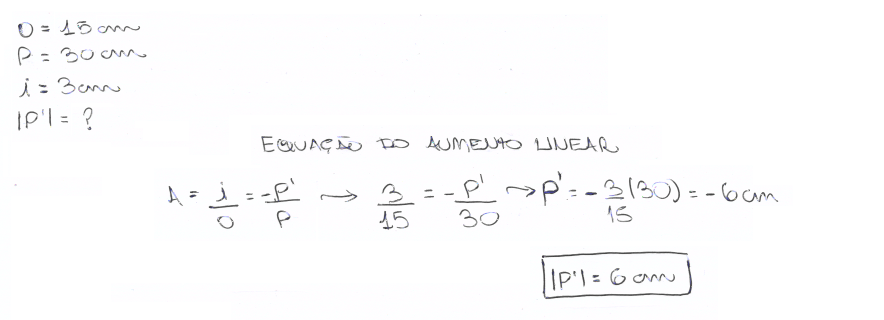 O = 15 cm
P = 30 cm
i = 3 cm
|P'| = ?
EQUAÇÃO DO AUMENTO LINEAR
A = i/O = -P'/P → 3/15 = -P'/30 → P' = -3/15 (30) = -6 cm
|P'| = 6 cm